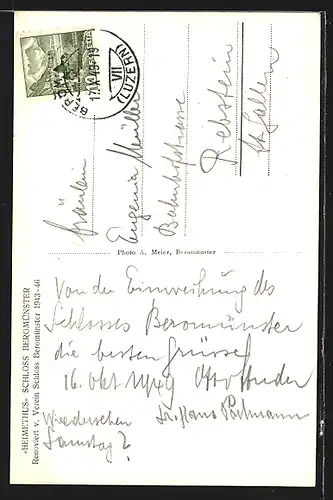 Fräulein
Eugenia Müller
Bahnhofstrasse
Rebstein
St. Gallen
(LUZERN)
VII
Photo A. Meier, Beromünster
«HELMETHUS» SCHLOSS BEROMÜNSTER
Renoviert v. Verein Schloss Beromünster 1943-46
Von der Einweihung des
Schlosses Beromünster
die besten Grüsse
16. Okt 1949
Dr. Hans Portmann
Wiedersehen
Samstag?